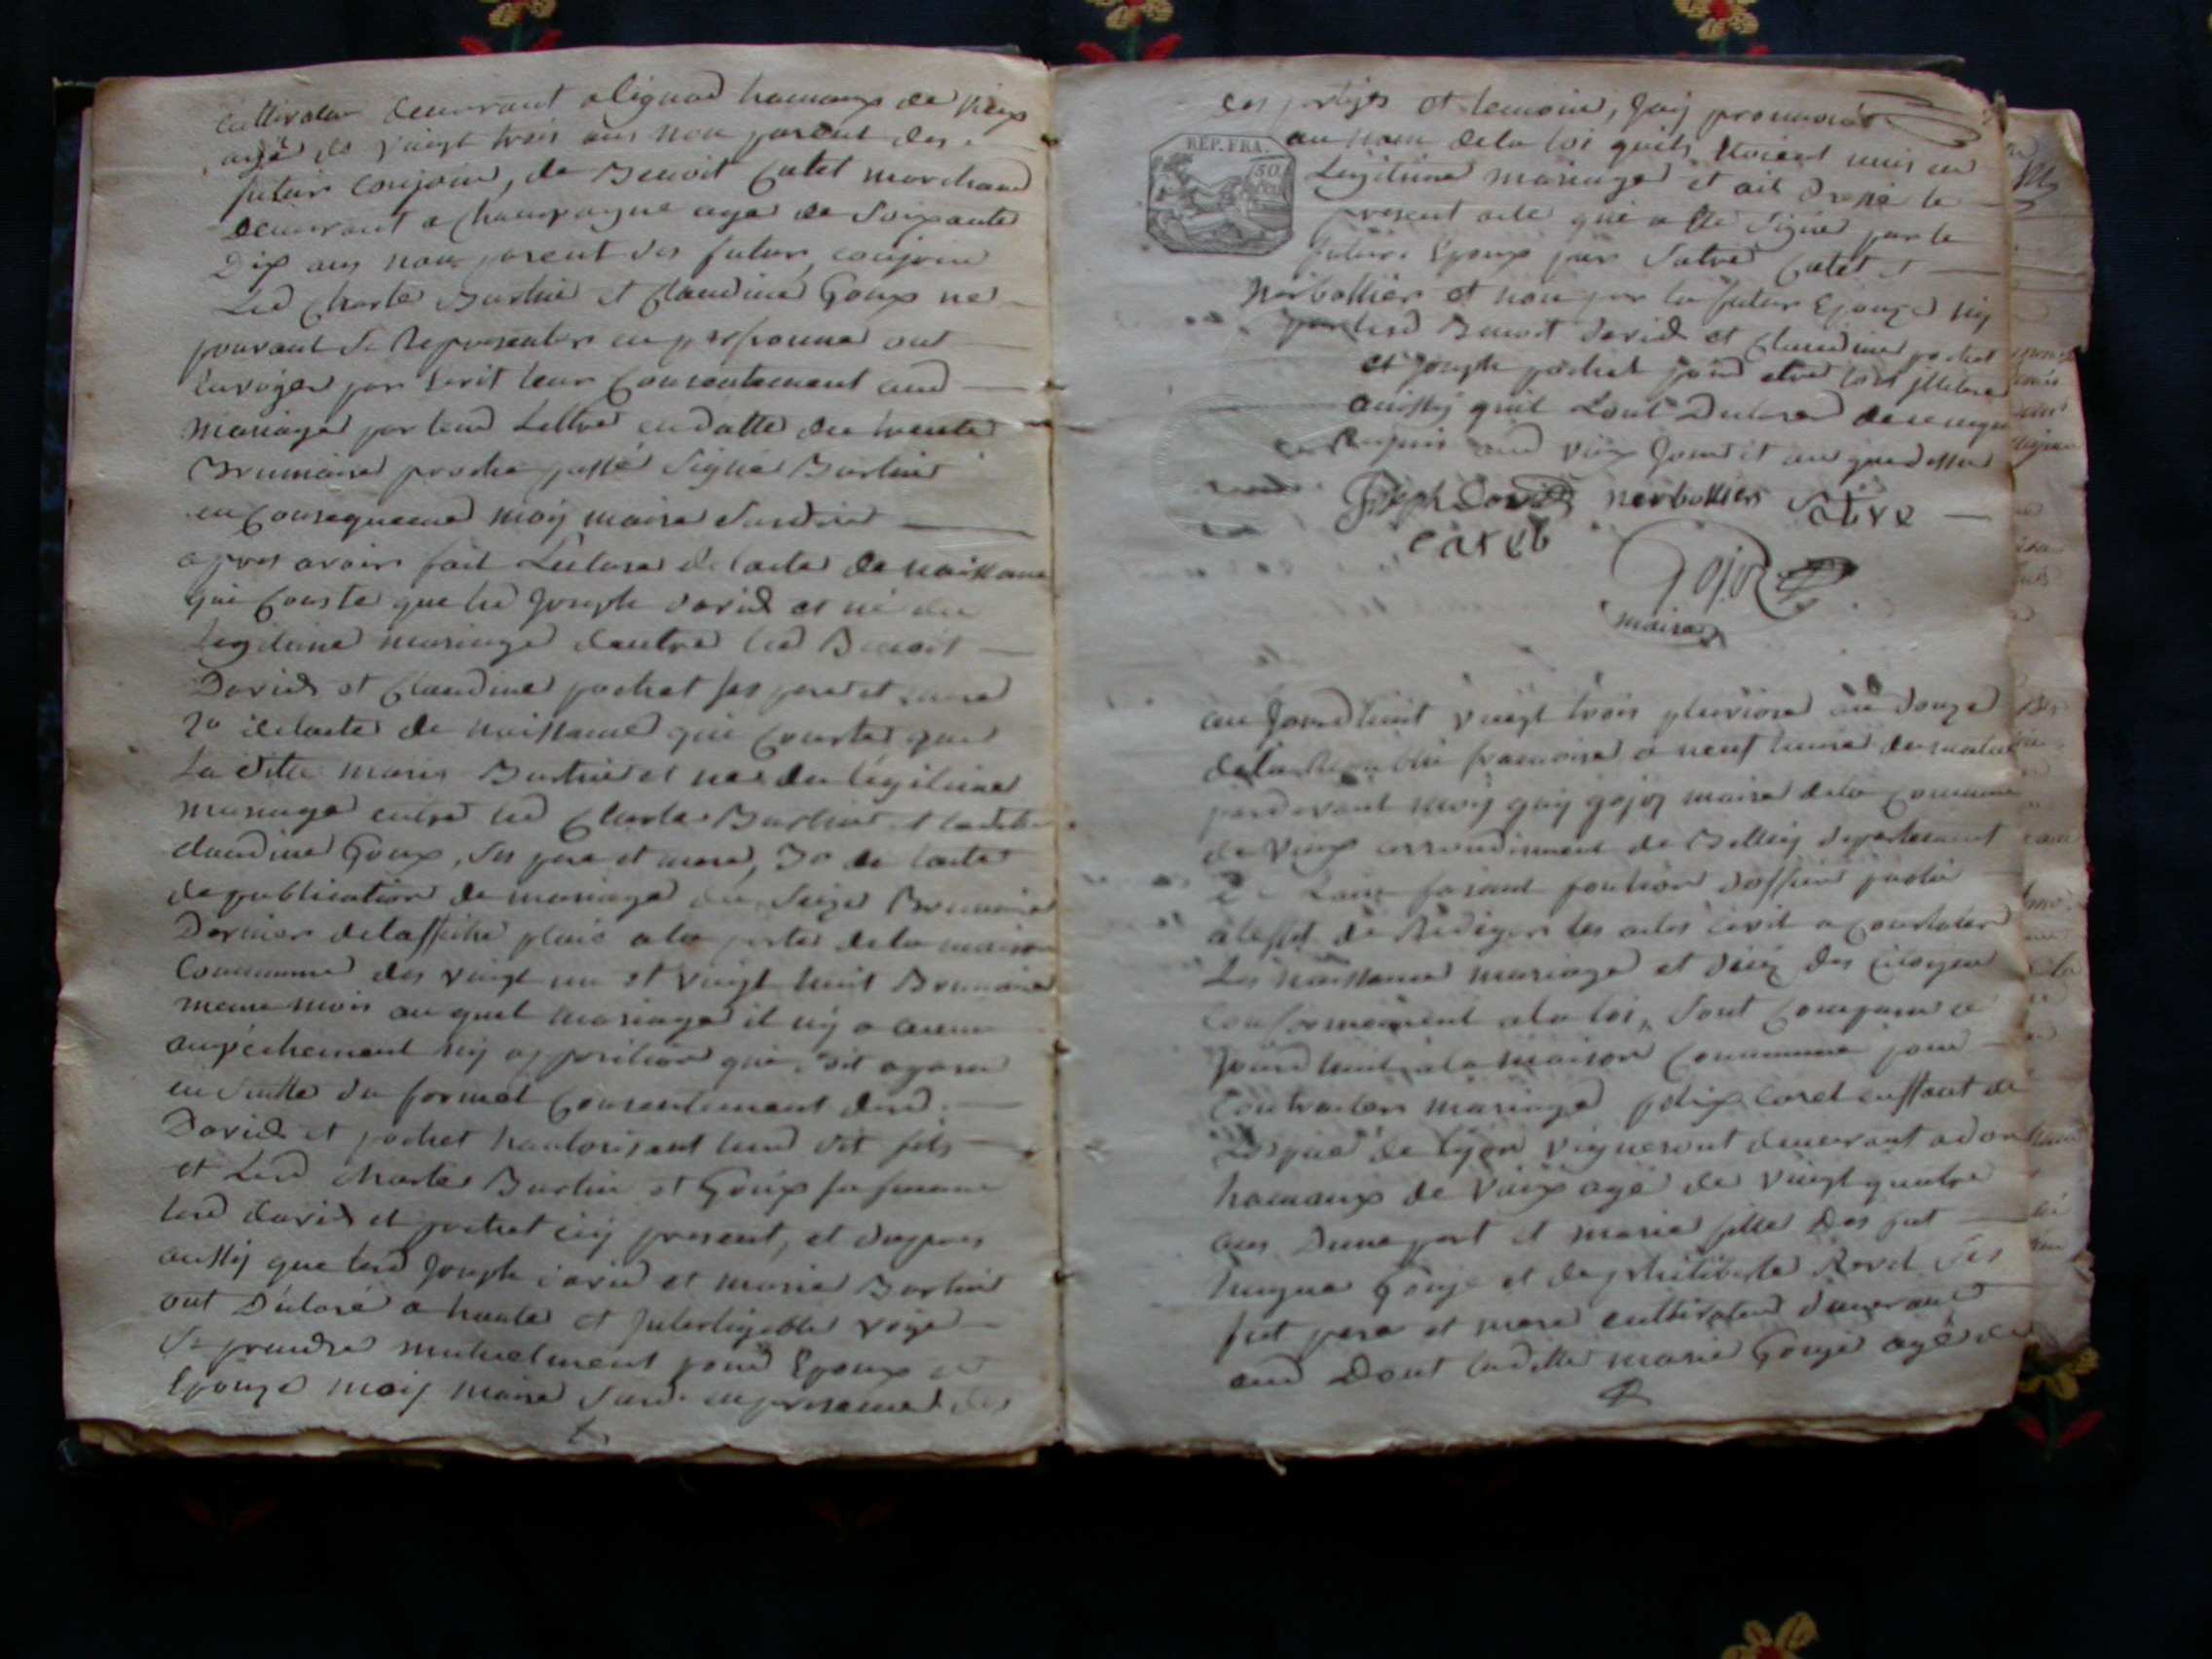 cultivateur demeurant a lignod hameaux de Vieux
agé de vingt trois ans non parent des
futur conjoins, de Benoit Catet marchand
Demeurant a Champagne agé de Soixante
Dix ans non parent des futur conjoins
Led Charle Burtin et Claudine Goux ne
pouvant se Representer en personne ont
Envoyer par Ecrit leur Consentement aud
mariage par leur Lettre en datte du trente
Brumaire proche passé Signé Burtin
en Consequence moy maire Susdit
apres avoir fait Lecture de lacte de naissance
qui Conste que led Joseph david et né du
legitime mariage dentre led Benoit
David et Claudine pochet ses pere et mere
2º de lacte de naissance qui Conste que
La ditte marie Burtin et née du légitime
mariage entre led Charle Burtin et laditte
claudine Goux, ses pere et mere, 3º de lacte
de publication de mariage du Seize Brumaire
Dernier de laffiche a la porte de la maison
Commune des vingt un et vingt huit Brumaire
meme mois au quel mariage il ny a aucun
anpechement ny opposition qui soit
en Suitte du formel Consentement desd
David et pochet hautorisant leur dit fils
et Led Charle Burtin et Goux sa femme
led david et pochet icy present, et
aussy que led Joseph david et marie Burtin
ont Déclaré a haute et Intelligible voye
Se prendre mutuelment pour Epoux et
Epouze moy maire Susd en presence des
des partyes et temoins, Jay prononcé
REP. FRA.
50
au nom de la loi quils Etoient unis en
Légitime mariage et ait Dressé le
present acte qui a Eté Signé par le
futur Epoux par Catet et
Nerbollier et non par la futur Epouze ny
par lesd Benoit David et Claudine pochet
et joseph pochet pour etre tous
aussy quil Lont Declaré de ce
Requis aud vieux Jour et an que dessus
Joseph David nerbollier
catet
Gojoz
maire
au Jourdhuit vingt trois pluviose an douze
de la Republi francoise a neuf heure du matin
pardevant moy guy gojoz maire de la Commune
de Vieux arrondisement de Belley departement
De Lain faisant fontion dofficier public
a leffet de Rediger les actes civil a Constater
Les naissance mariage et deces des Citoyens
Conformement a la loi, Sont Comparu ce
Jourdhuit a la maison Commune pour
Contracter mariage enffant de
de lyon vigneront demeurant a don
hameaux de Vieux agé de vingt quatre
ans Dune part et marie fille Des fut
hugue Gouje et de philiberte Ravet Ses
fut pere et mere cultivateur demeurant
aud Dont laditte marie Gouje agée de